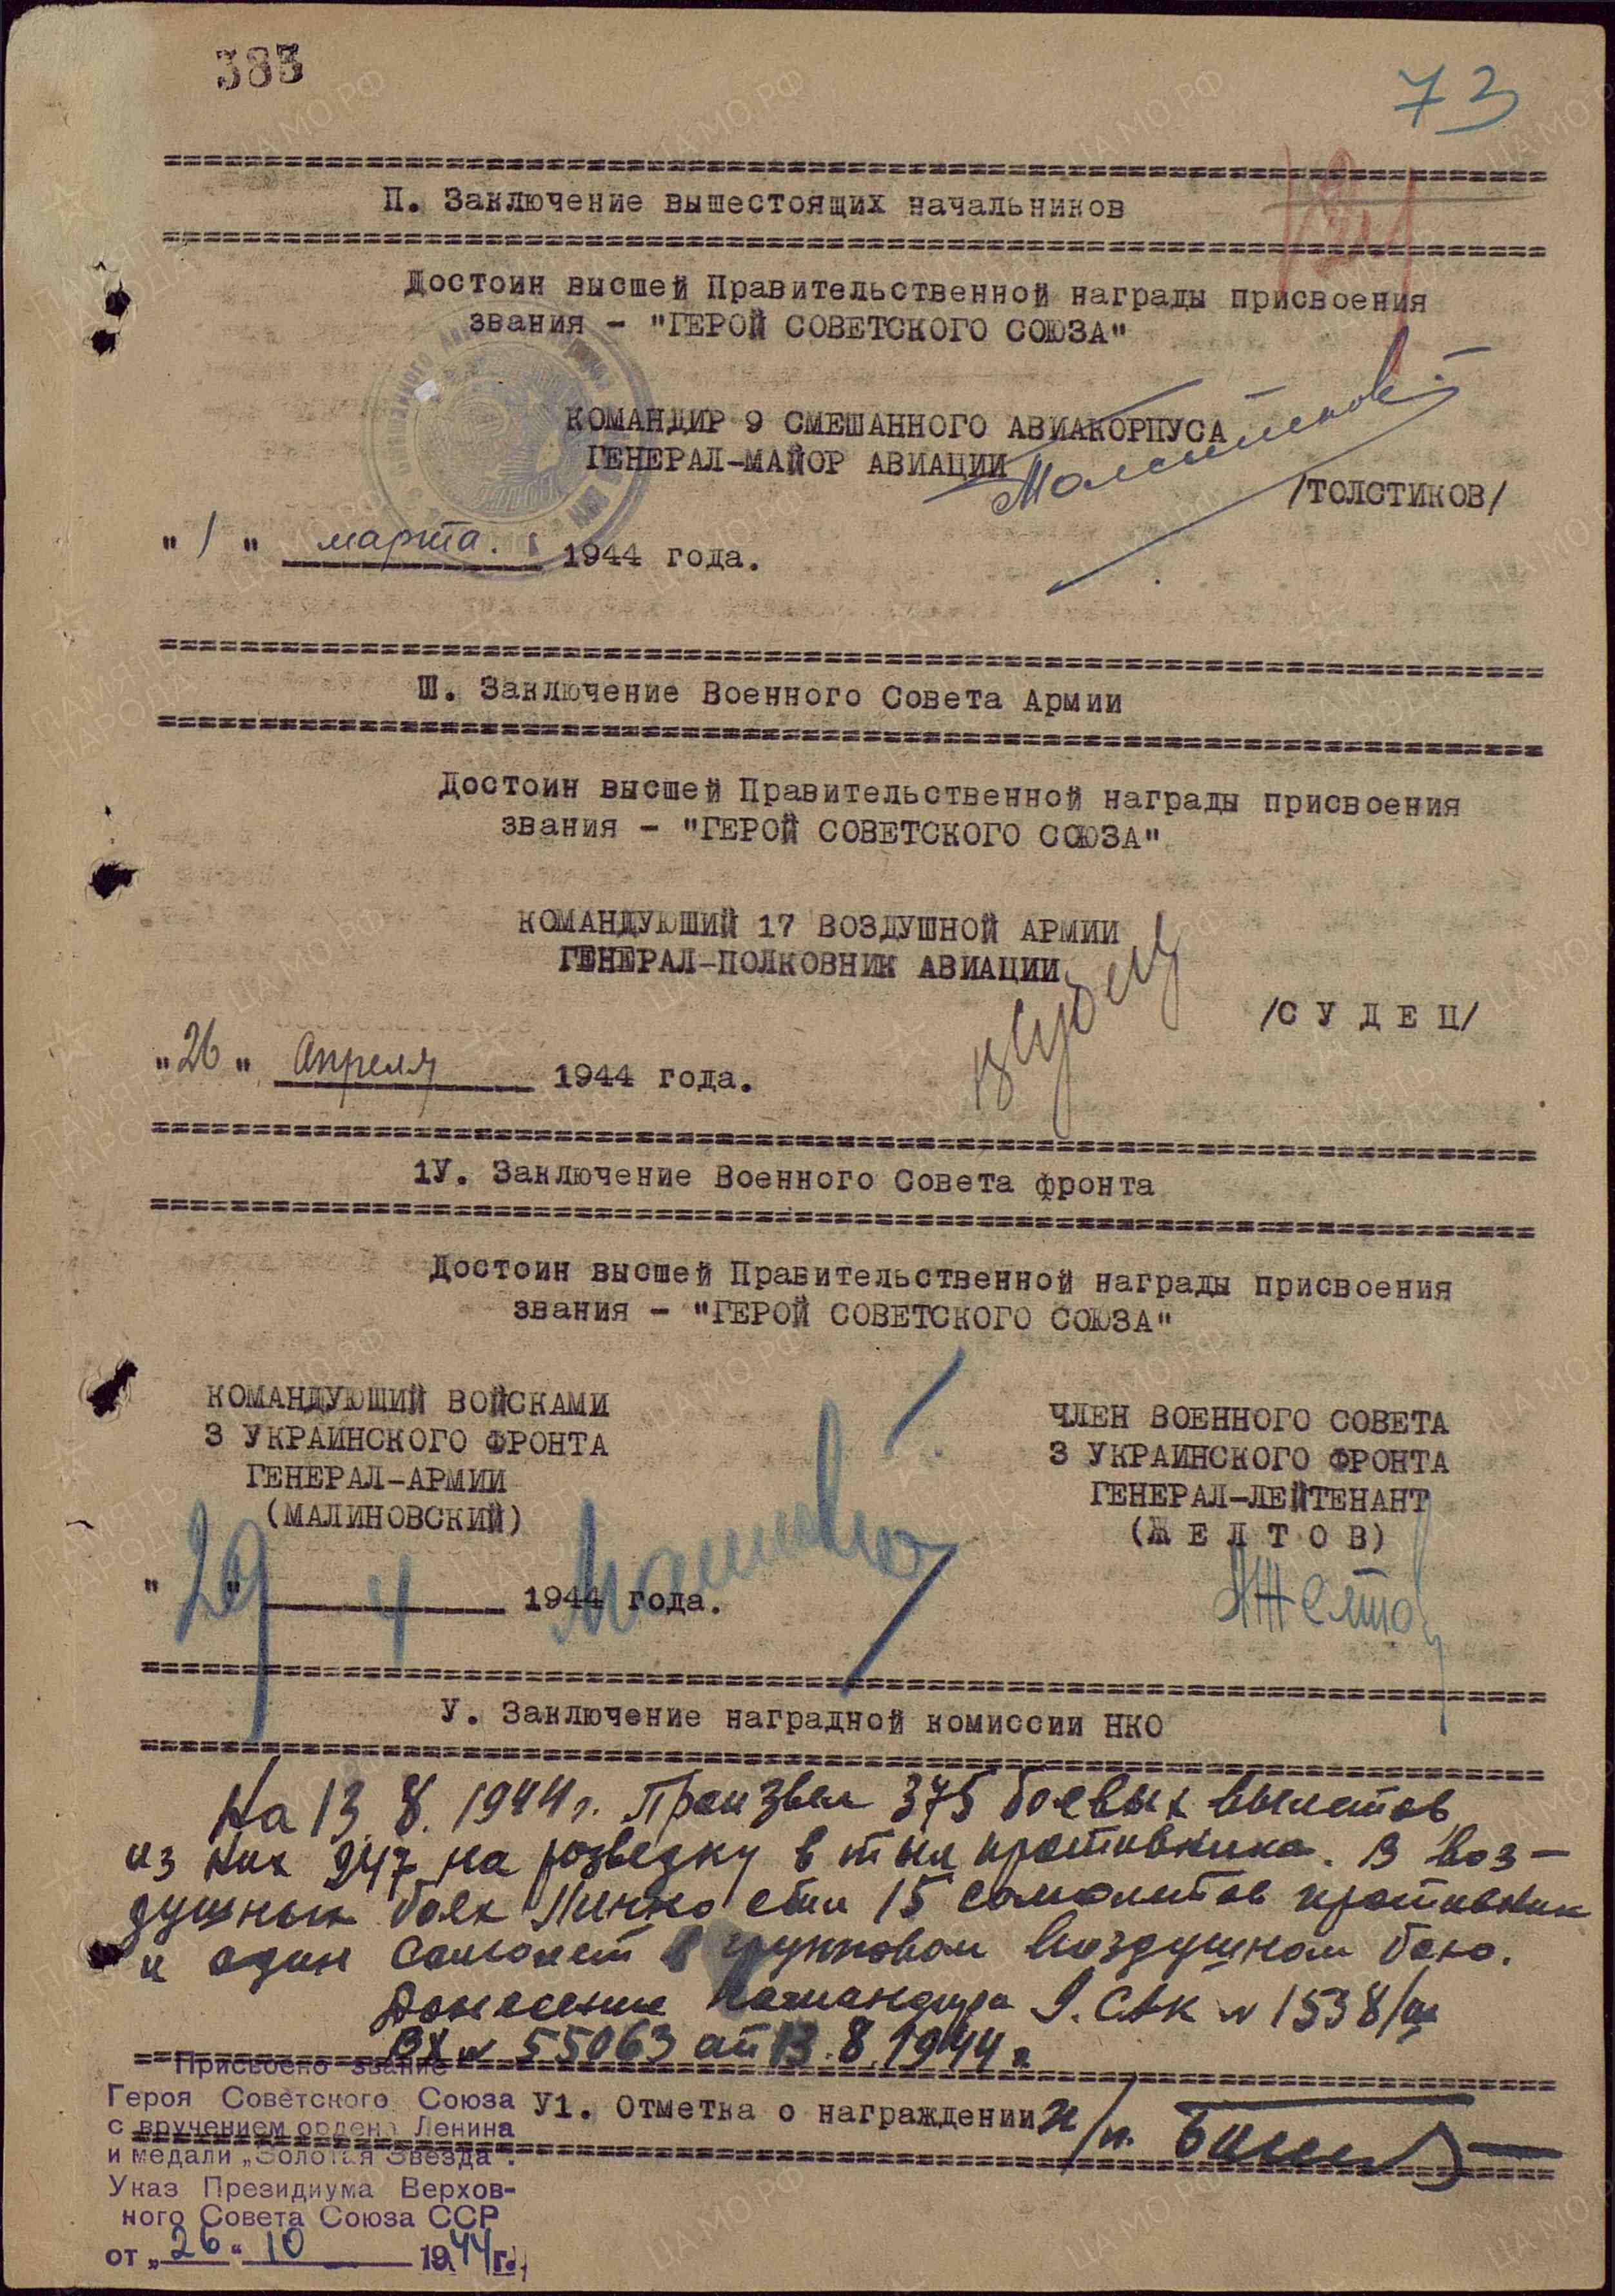 383
73
П. Заключение вышестоящих начальников
Достоин высшей Правительственной награды присвоения
звания - "ГЕРОЙ СОВЕТСКОГО СОЮЗА"
КОМАНДИР 9 СМЕШАННОГО АВИАКОРПУСА
ГЕНЕРАЛ-МАЙОР АВИАЦИИ
/ТОЛСТИКОВ/
"1" марта. 1944 года.
Ш. Заключение Военного Совета Армии
Достоин высшей Правительственной награды присвоения
звания - "ГЕРОЙ СОВЕТСКОГО СОЮЗА"
КОМАНДУЮШИЙ 17 ВОЗДУШНОЙ АРМИИ
ГЕНЕРАЛ-ПОЛКОВНИК АВИАЦИИ
/С У Д Е Ц/
"26" Апреля 1944 года.
1У. Заключение Военного Совета фронта
Достоин высшей Правительственной награды присвоения
звания - "ГЕРОЙ СОВЕТСКОГО СОЮЗА"
КОМАНДУЮЩИЙ ВОЙСКАМИ
3 УКРАИНСКОГО ФРОНТА
ГЕНЕРАЛ-АРМИИ
(МАЛИНОВСКИЙ)
ЧЛЕН ВОЕННОГО СОВЕТА
3 УКРАИНСКОГО ФРОНТА
ГЕНЕРАЛ-ЛЕЙТЕНАНТ
(Ж Е Л Т О В)
"29" 4 1944 года.
У. Заключение наградной комиссии НКО
На 13.8.1944 г. Произвел 375 боевых вылетов
из них 247 на розведку в тыл противника. В воз-
душных боях лично сбил 15 самолетов противник
и один самолет в групповом воздушном бою.
Донесение Командира 9.САК № 1538/ш
ВХ № 55063 от 13.8.1944 г
Присвоено звание
Героя Советского Союза
с вручением ордена Ленина
и медали „Золотая Звезда".
Указ Президиума Верхов-
ного Совета Союза ССР
от „26" 10 1944 г.
У1. Отметка о награждении
п/п.